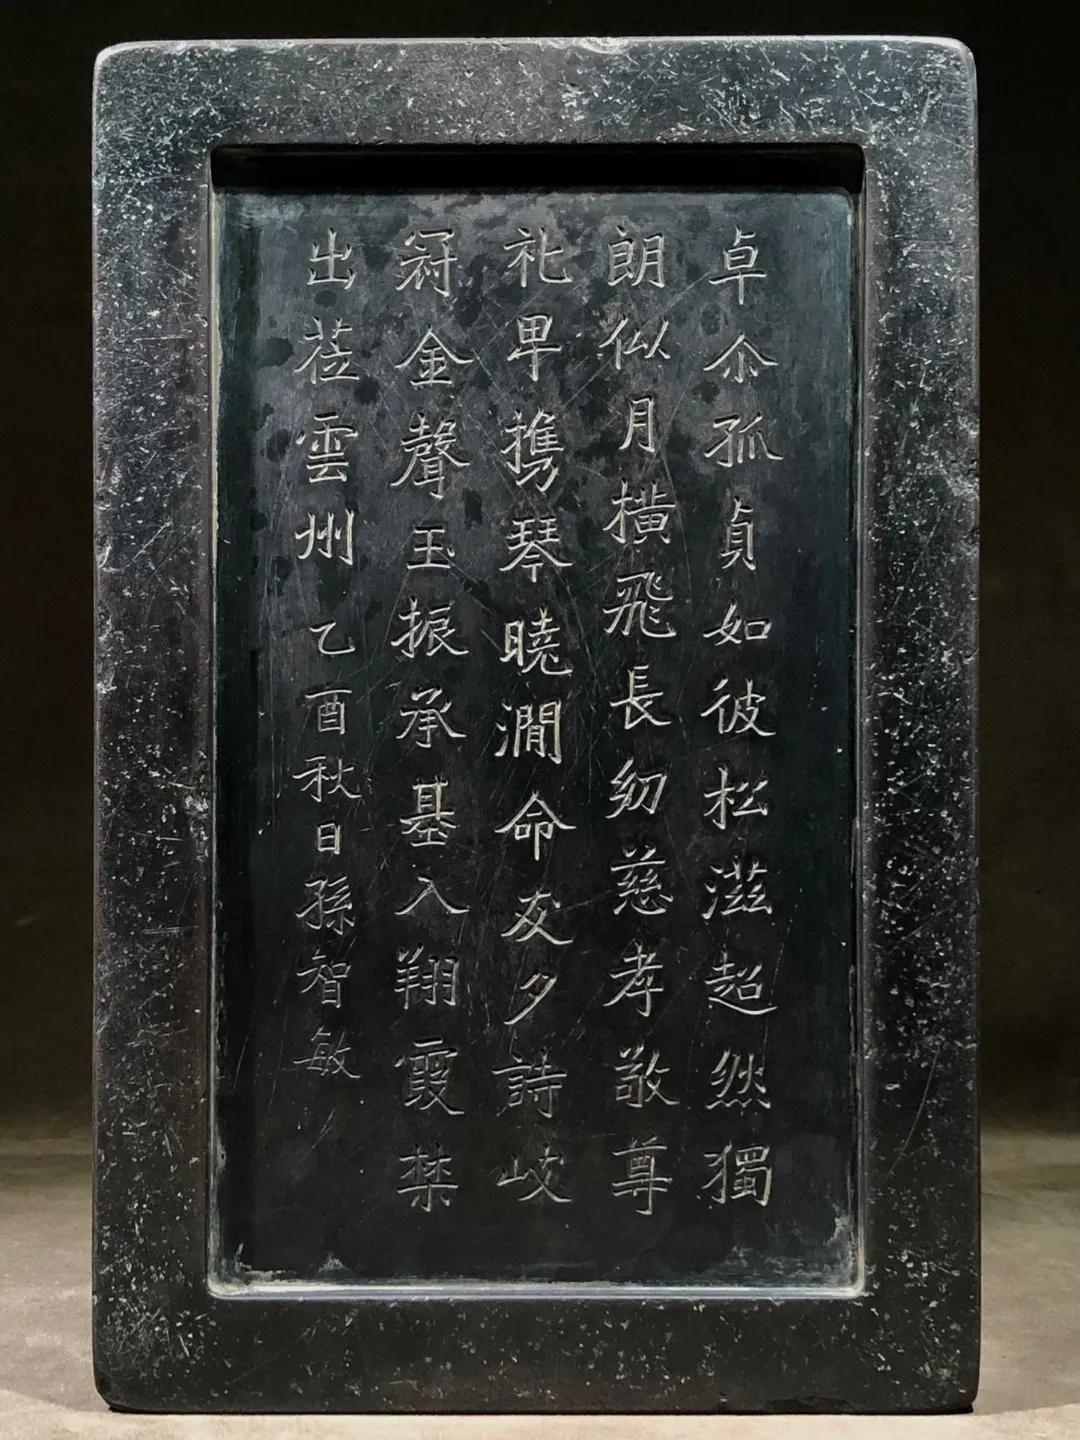 卓尒孤貞如彼松滋超然獨
朗似月橫飛長幼慈孝敬尊
礼卑攜琴曉澗命友夕詩岐
冠金聲玉振承基入翔霞禁
出莅雲州乙酉秋日孫智敏